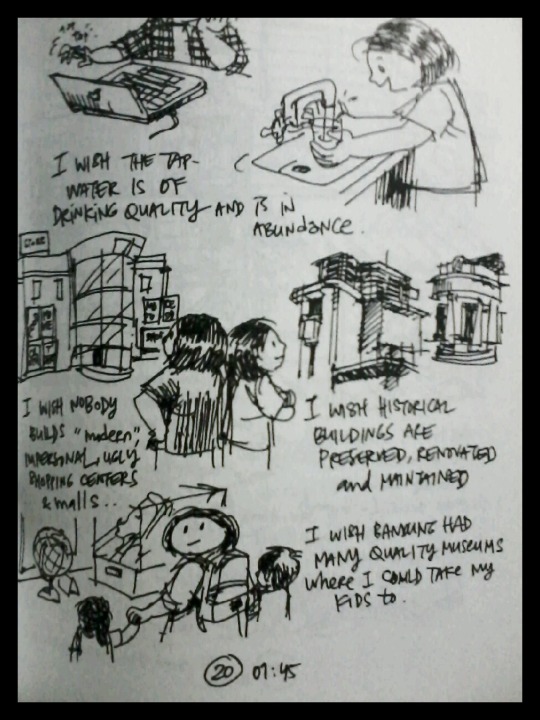 I WISH THE TAP-
WATER IS OF
DRINKING QUALITY AND IS IN
ABUNDANCE.
I WISH NOBODY
BUILDS "modern",
IMPERSONAL, UGLY
SHOPPING CENTERS
& malls..
I WISH HISTORICAL
BUILDINGS ARE
PRESERVED, RENOVATED
and MAINTAINED
I WISH BANDUNG HAD
MANY QUALITY MUSEUMS
where I COULD TAKE MY
KIDS to.
20 07:45